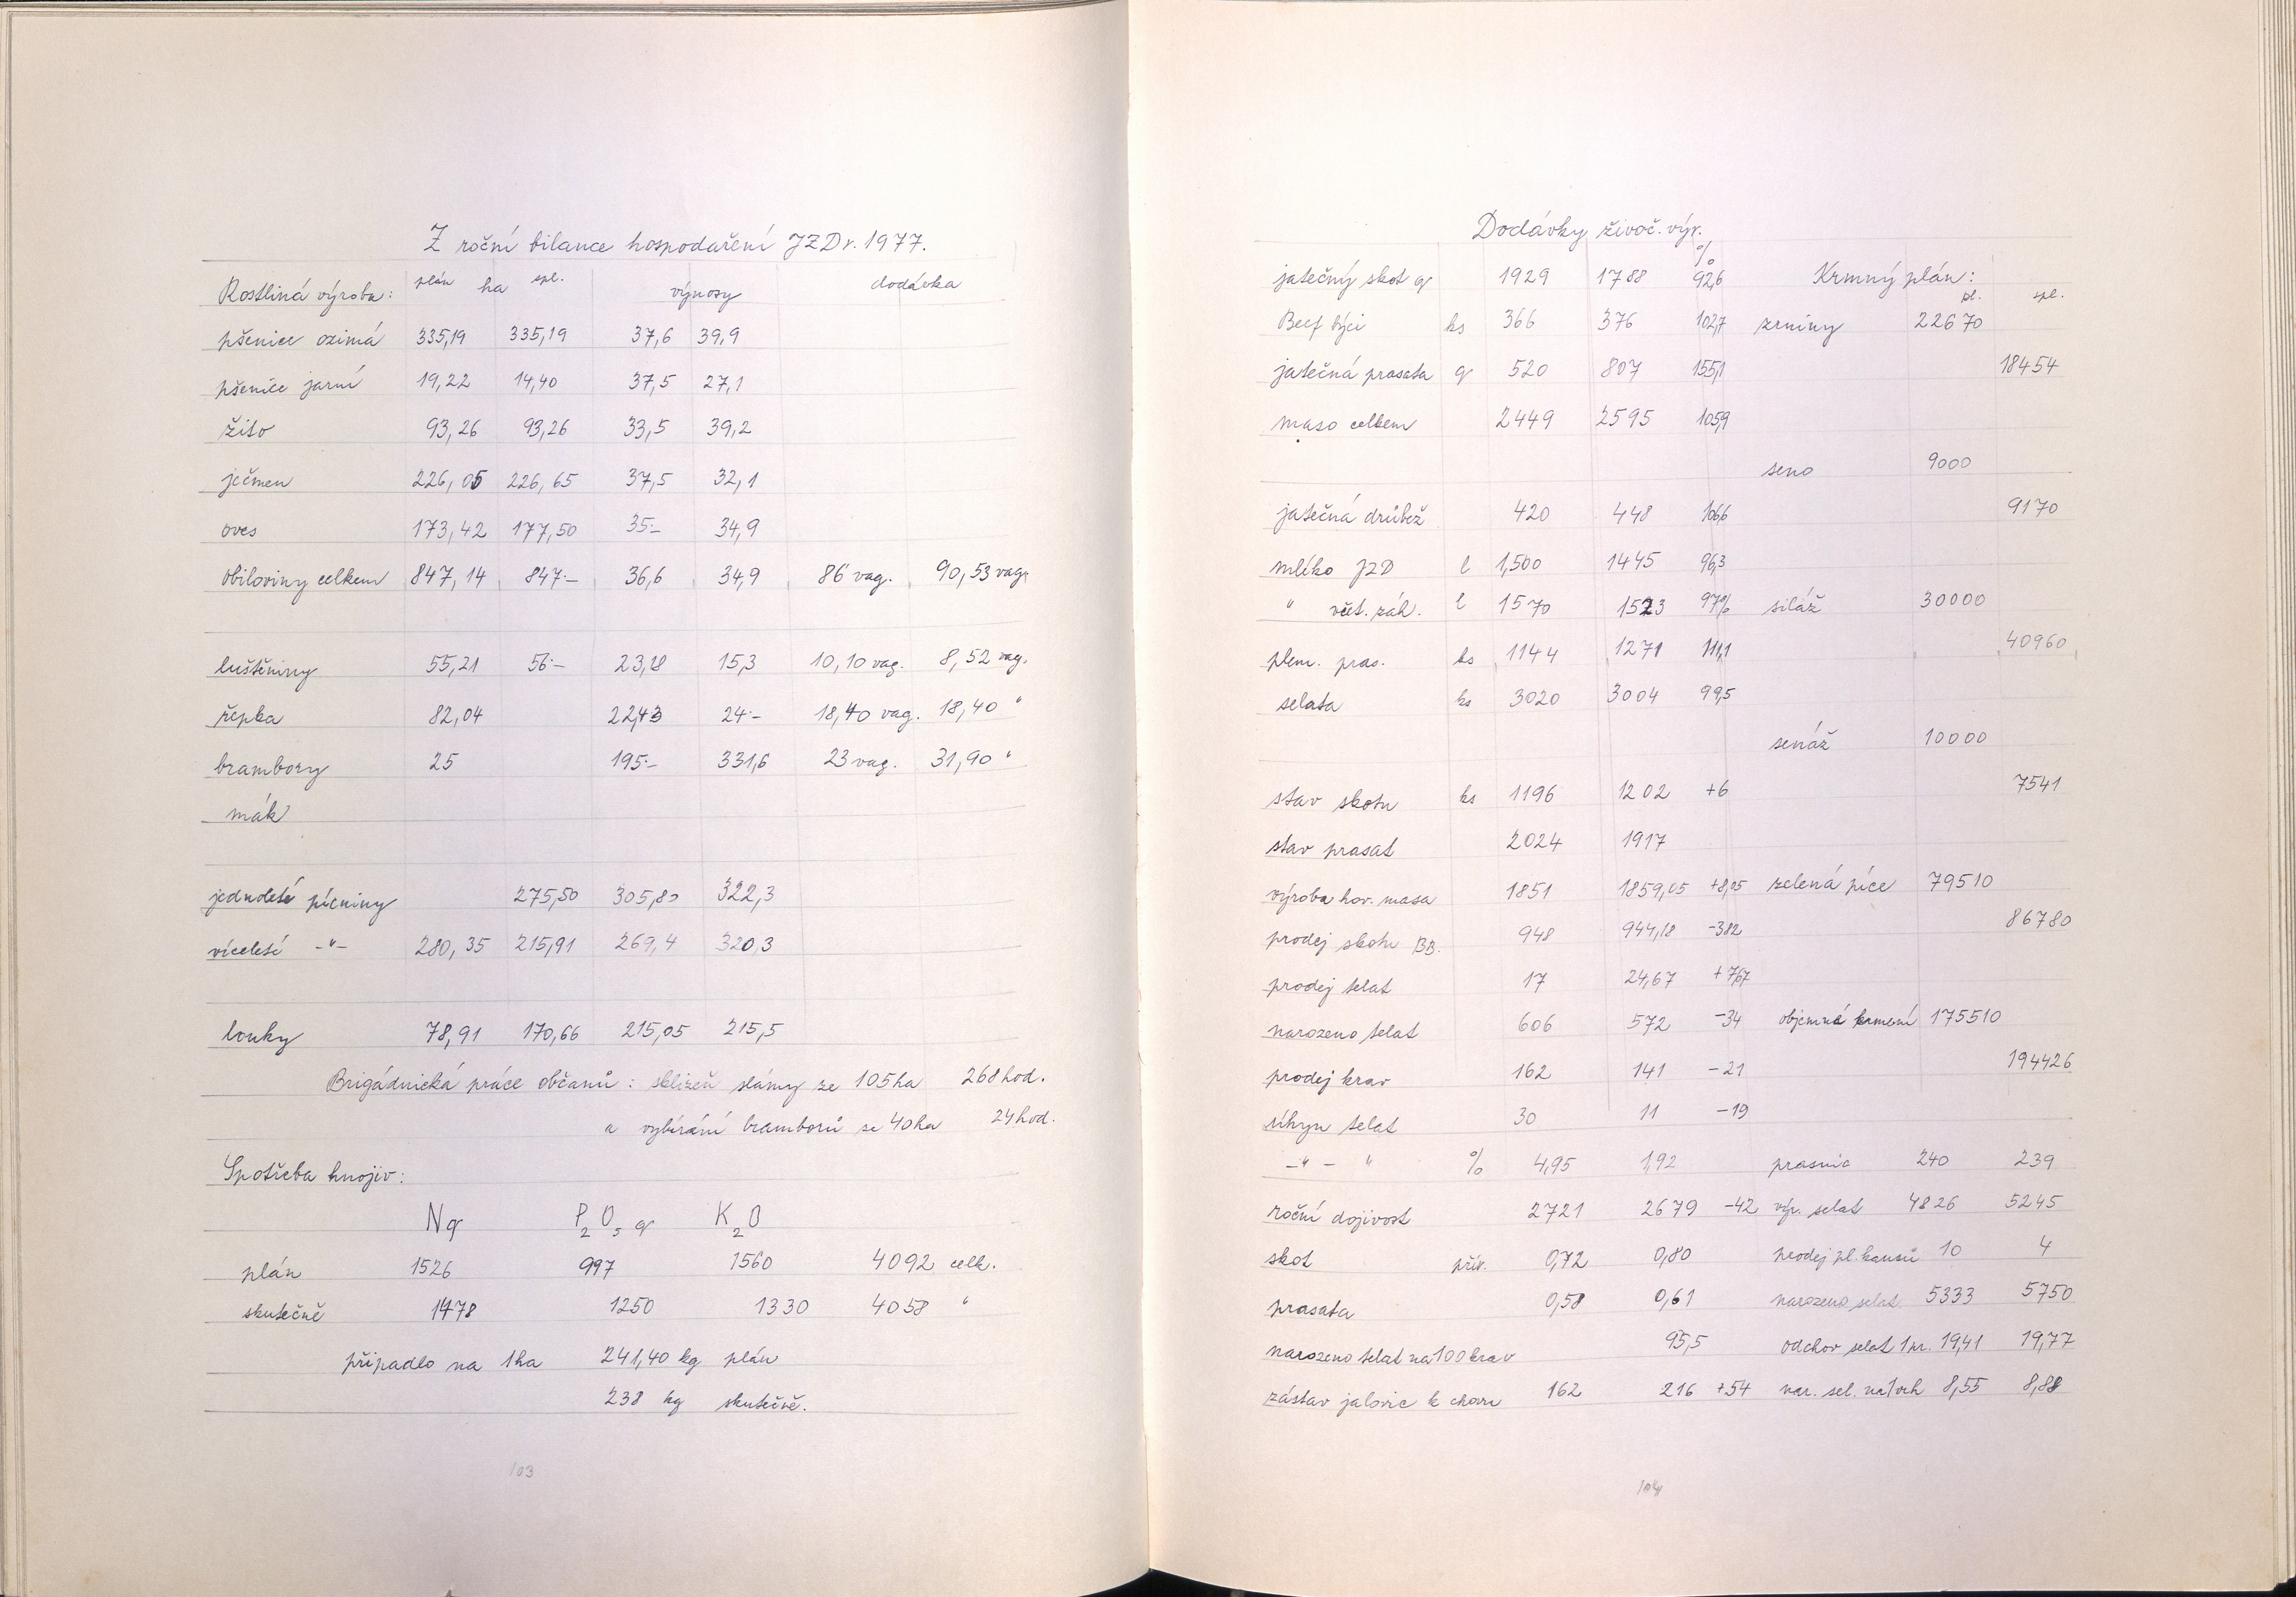 Z roční bilance hospodaření JZD r. 1977.
Rostliná výroba: plán ha spl. výnosy dodávka
pšenice ozimá 335,19 335,19 37,6 39,9
pšenice jarní 19,22 14,40 37,5 27,1
žito 93,26 93,26 33,5 39,2
ječmen 226,05 226,65 37,5 32,1
oves 173,42 177,50 35:- 34,9
obiloviny celkem 847,14 847:- 36,6 34,9 86 vag. 90,53 vag.
luštěniny 55,21 56:- 23,18 15,3 10,10 vag. 8,52 vag.
řepka 82,04 22,43 24:- 18,40 vag. 18,40 "
brambory 25 195:- 331,6 23 vag. 31,90 "
mák
jednoleté pícniny 275,50 305,80 322,3
víceleté -"- 280,35 215,91 269,4 320,3
louky 78,91 170,66 215,05 215,5
Brigádnická práce občanů: sklizeň slámy ze 105 ha 268 hod.
a vybírání bramborů ze 40 ha 24 hod.
Spotřeba hnojiv:
N q P2O5 q K2O
plán 1526 997 1560 4092 celk.
skutečně 1478 1250 1330 4058 "
připadlo na 1 ha 241,40 kg plán
238 kg skutečně.
103
Dodávky živoč. výr.
%
jatečný skot q 1929 1788 92,6 Krmný plán:
pl. spl.
Beef býci ks 366 376 102,7 zrniny 22670
jatečná prasata q 520 807 155,1 18454
maso celkem 2449 2595 105,9
seno 9000
jatečná drůbež 420 448 106,6 9170
mléko JZD l 1,500 1445 96,3
" včet. záh. l 1570 1523 97% siláž 30000
plem. pras. ks 1144 1271 111,1 40960
selata ks 3020 3004 99,5
senáž 10000
stav skotu ks 1196 1202 +6 7541
stav prasat 2024 1917
výroba hov. masa 1851 1859,05 +8,05 zelená píce 79510
prodej skotu BB. 948 944,18 -382 86780
prodej telat 17 24,67 +7,67
narozeno telat 606 572 -34 objemná krmení 175510
prodej krav 162 141 -21 194426
úhyn telat 30 11 -19
-"- " % 4,95 1,92 prasnic 240 239
roční dojivost 2721 2679 -42 výr. selat 4826 5245
skot přír. 0,72 0,80 prodej pl. kanců 10 4
prasata 0,58 0,61 narozeno selat 5333 5750
narozeno telat na 100 krav 95,5 odchov selat 1 pr. 19,41 19,77
zástav jalovic k chovu 162 216 +54 nar. sel. na 1 vrh 8,55 8,88
104